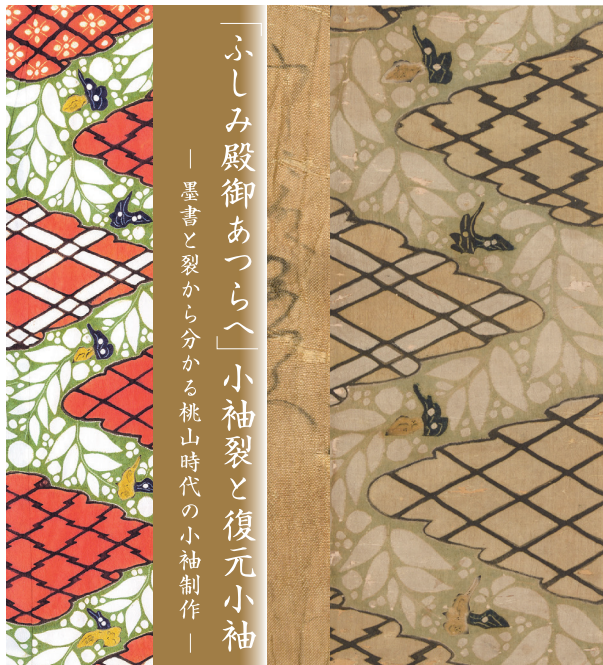 「ふしみ殿御あつらへ」小袖裂と復元小袖
― 墨書と裂から分かる桃山時代の小袖制作 ―